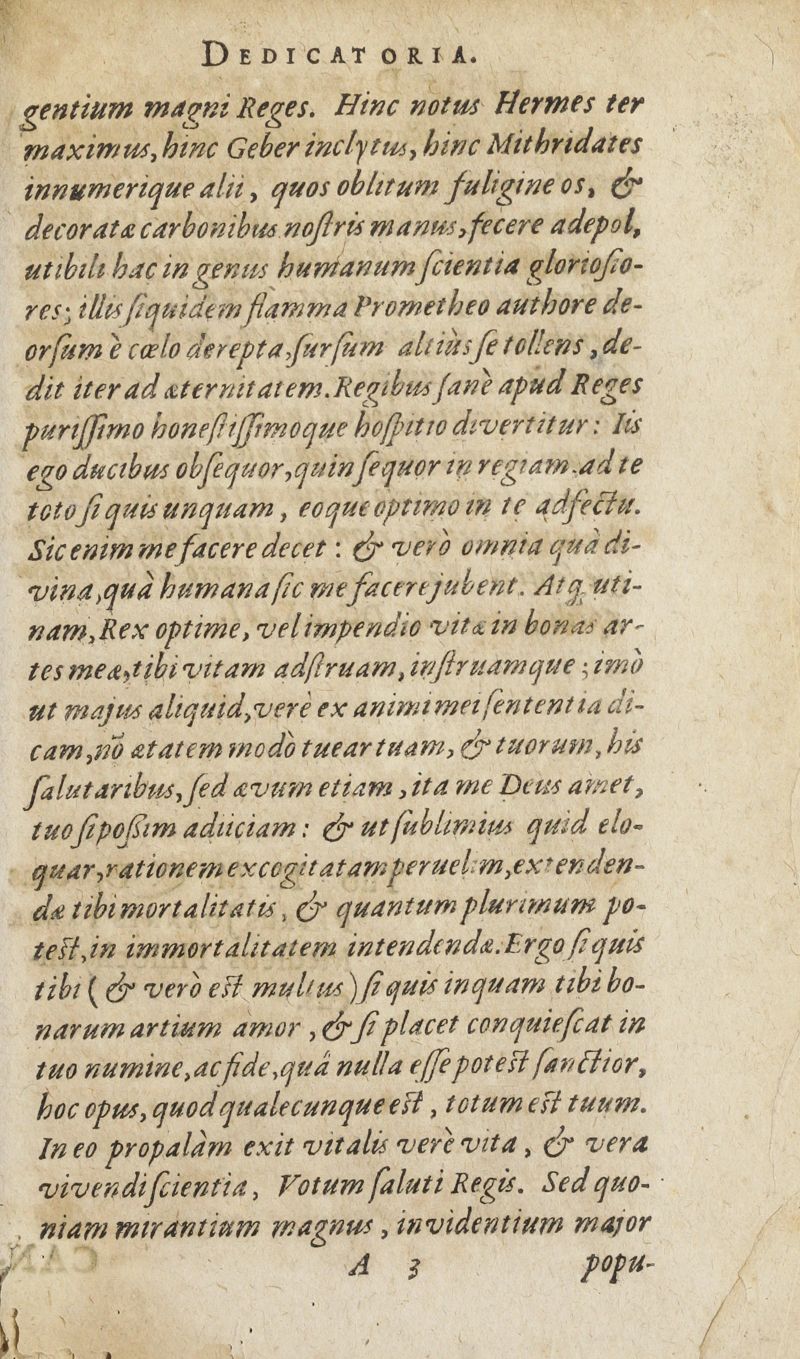 DEDICATORIA.
gentium magni Reges. Hinc notus Hermes ter
maximus, hinc Geber inclytus, hinc Mithridates
innumerique alii, quos oblitum fuligine os, &
decoratæ carbonibus noſtris manus, fecere adepol,
utibili hac in genus humanum ſcientia glorioſio-
res; illis ſiquidem flamma Prometheo authore de-
orſum è cœlo derepta, ſurſum altiùs ſe tollens, de-
dit iter ad æternitatem. Regibus ſanè apud Reges
puriſſimo honeſtiſſimoque hoſpitio divertitur: Iis
ego ducibus obſequor, quin ſequor in regiam. ad te
toto ſi quis unquam, eoque optimo in te adfectu.
Sic enim me facere decet: & verò omnia quà di-
vina, quà humana ſic me facere jubent. Atq; uti-
nam, Rex optime, vel impendio vitæ in bonas ar-
tes meæ, tibi vitam adſtruam, inſtruamque; imò
ut majus aliquid, verè ex animi mei ſententia di-
cam, nõ ætatem modò tuear tuam, & tuorum, his
ſalutaribus, ſed ævum etiam, ita me Deus amet,
tuo ſi poſſim adiiciam: & ut ſublimius quid elo-
quar, rationem excogitatam peruelim, extenden-
dæ tibi mortalitatis, & quantum plurimum po-
teſt, in immortalitatem intendendæ. Ergo ſi quis
tibi (& verò eſt multus) ſi quis inquam tibi bo-
narum artium amor, & ſi placet conquieſcat in
tuo numine, ac fide, quâ nulla eſſe poteſt ſanctior,
hoc opus, quod qualecunque eſt, totum eſt tuum.
In eo propalàm exit vitalis verè vita, & vera
vivendi ſcientia, Votum ſaluti Regis. Sed quo-
niam mirantium magnus, invidentium major
A 3 popu-